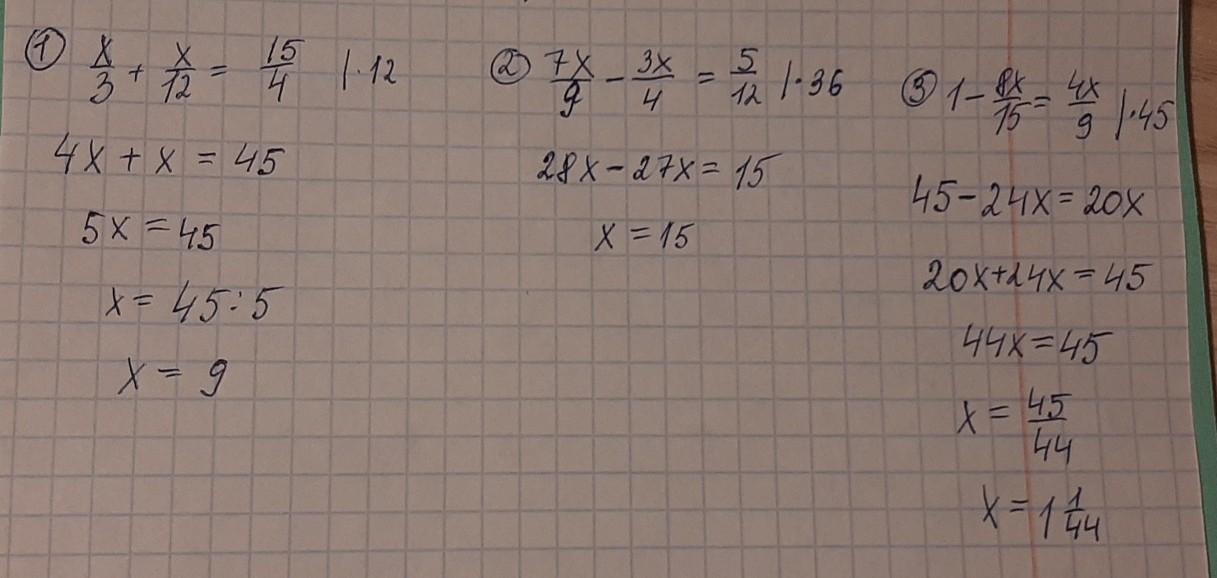 ① x/3 + x/12 = 15/4 |·12
4x + x = 45
5x = 45
x = 45:5
x = 9
② 7x/9 − 3x/4 = 5/12 |·36
28x − 27x = 15
x = 15
③ 1 − 8x/15 = 4x/9 |·45
45 − 24x = 20x
20x + 24x = 45
44x = 45
x = 45/44
x = 1 1/44